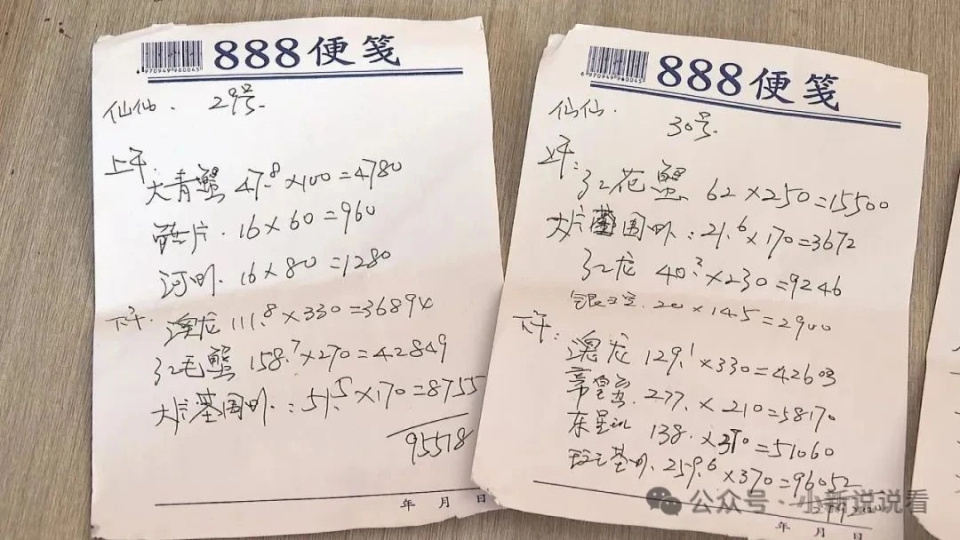 6970949960045
888便笺
仙仙. 29号.
上午.
大青蟹 47.8×100=4780
16×60=960
河叭. 16×80=1280
下午. 澳龙 111.8×330=36894
红毛蟹 158.7×270=42849
大片基围叭.:51.5×170=8755
95518
年 月 日
6970949960045
888便笺
仙仙. 30号.
上午:
红花蟹 62×250=15500
大片基围叭.:21.6×170=3672
红龙 40.2×230=9246
20×145=2900
下午:
澳龙 129.1×330=42603
帝皇蟹. 277.×210=58170
东星 138.×370=51060
基叭. 259.6×370=96052
年 月 日
公众号·小新说说看